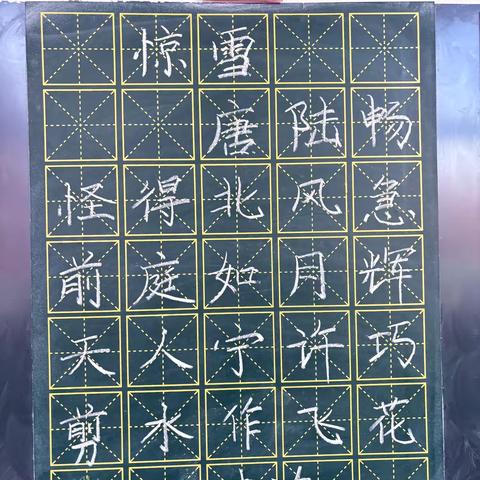 惊雪
唐 陆畅
怪得北风急
前庭如月辉
天人宁许巧
剪水作飞花